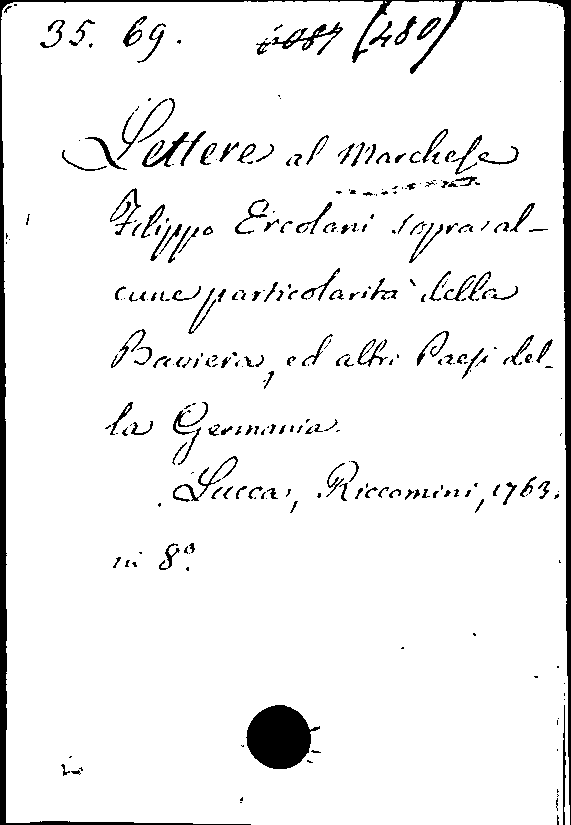 35. 69. 6087 (480)
Lettere al Marchese
Filippo Ercolani sopra al-
cune particolarità della
Baviera, ed altri Paesi del-
la Germania.
Lucca, Riccomini, 1763.
in 8º.